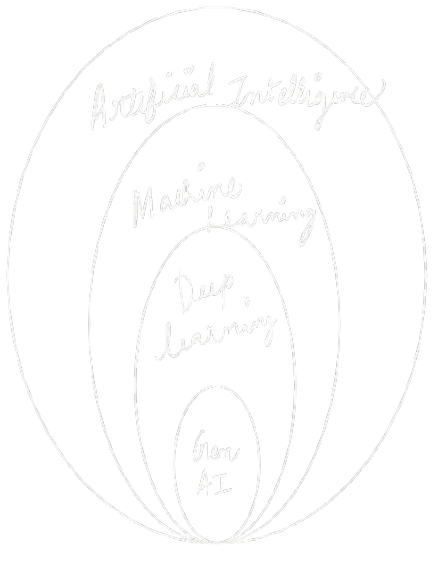 Artificial Intelligence
Machine
Learning
Deep
learning
Gen
AI